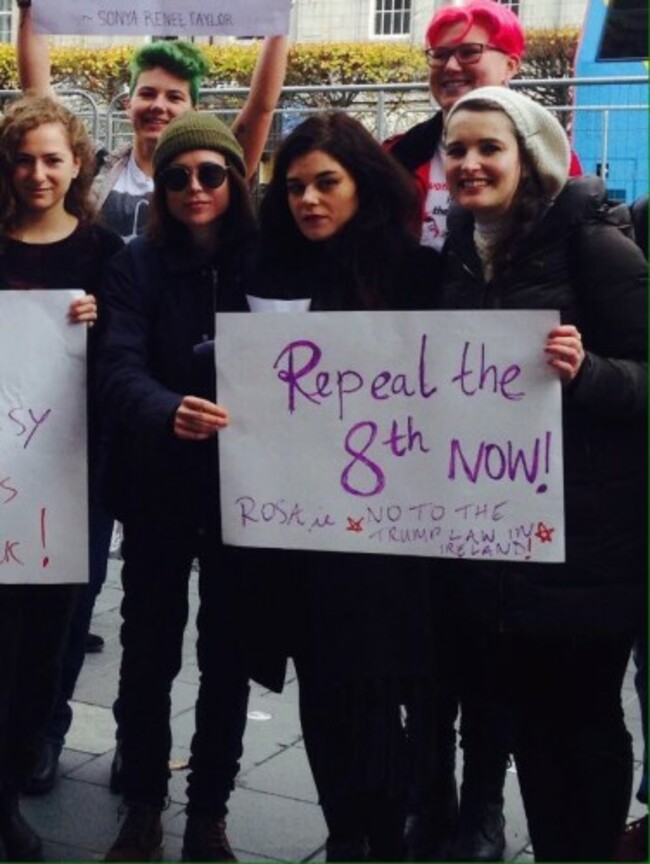 ~ SONYA RENEE TAYLOR
SY
S
K!
Repeal the
8th NOW!
ROSA.ie NO TO THE
TRUMP LAW IN
IRELAND!